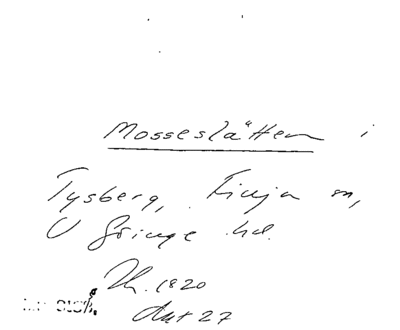 Mosseslätten i
Tysberg, Finja sn,
V Göinge hd.
Dh. 1820
Akt 27